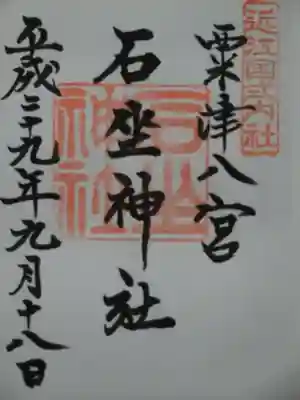 近江国式内社
粟津八宮
石坐神社
平成二十九年九月十八日